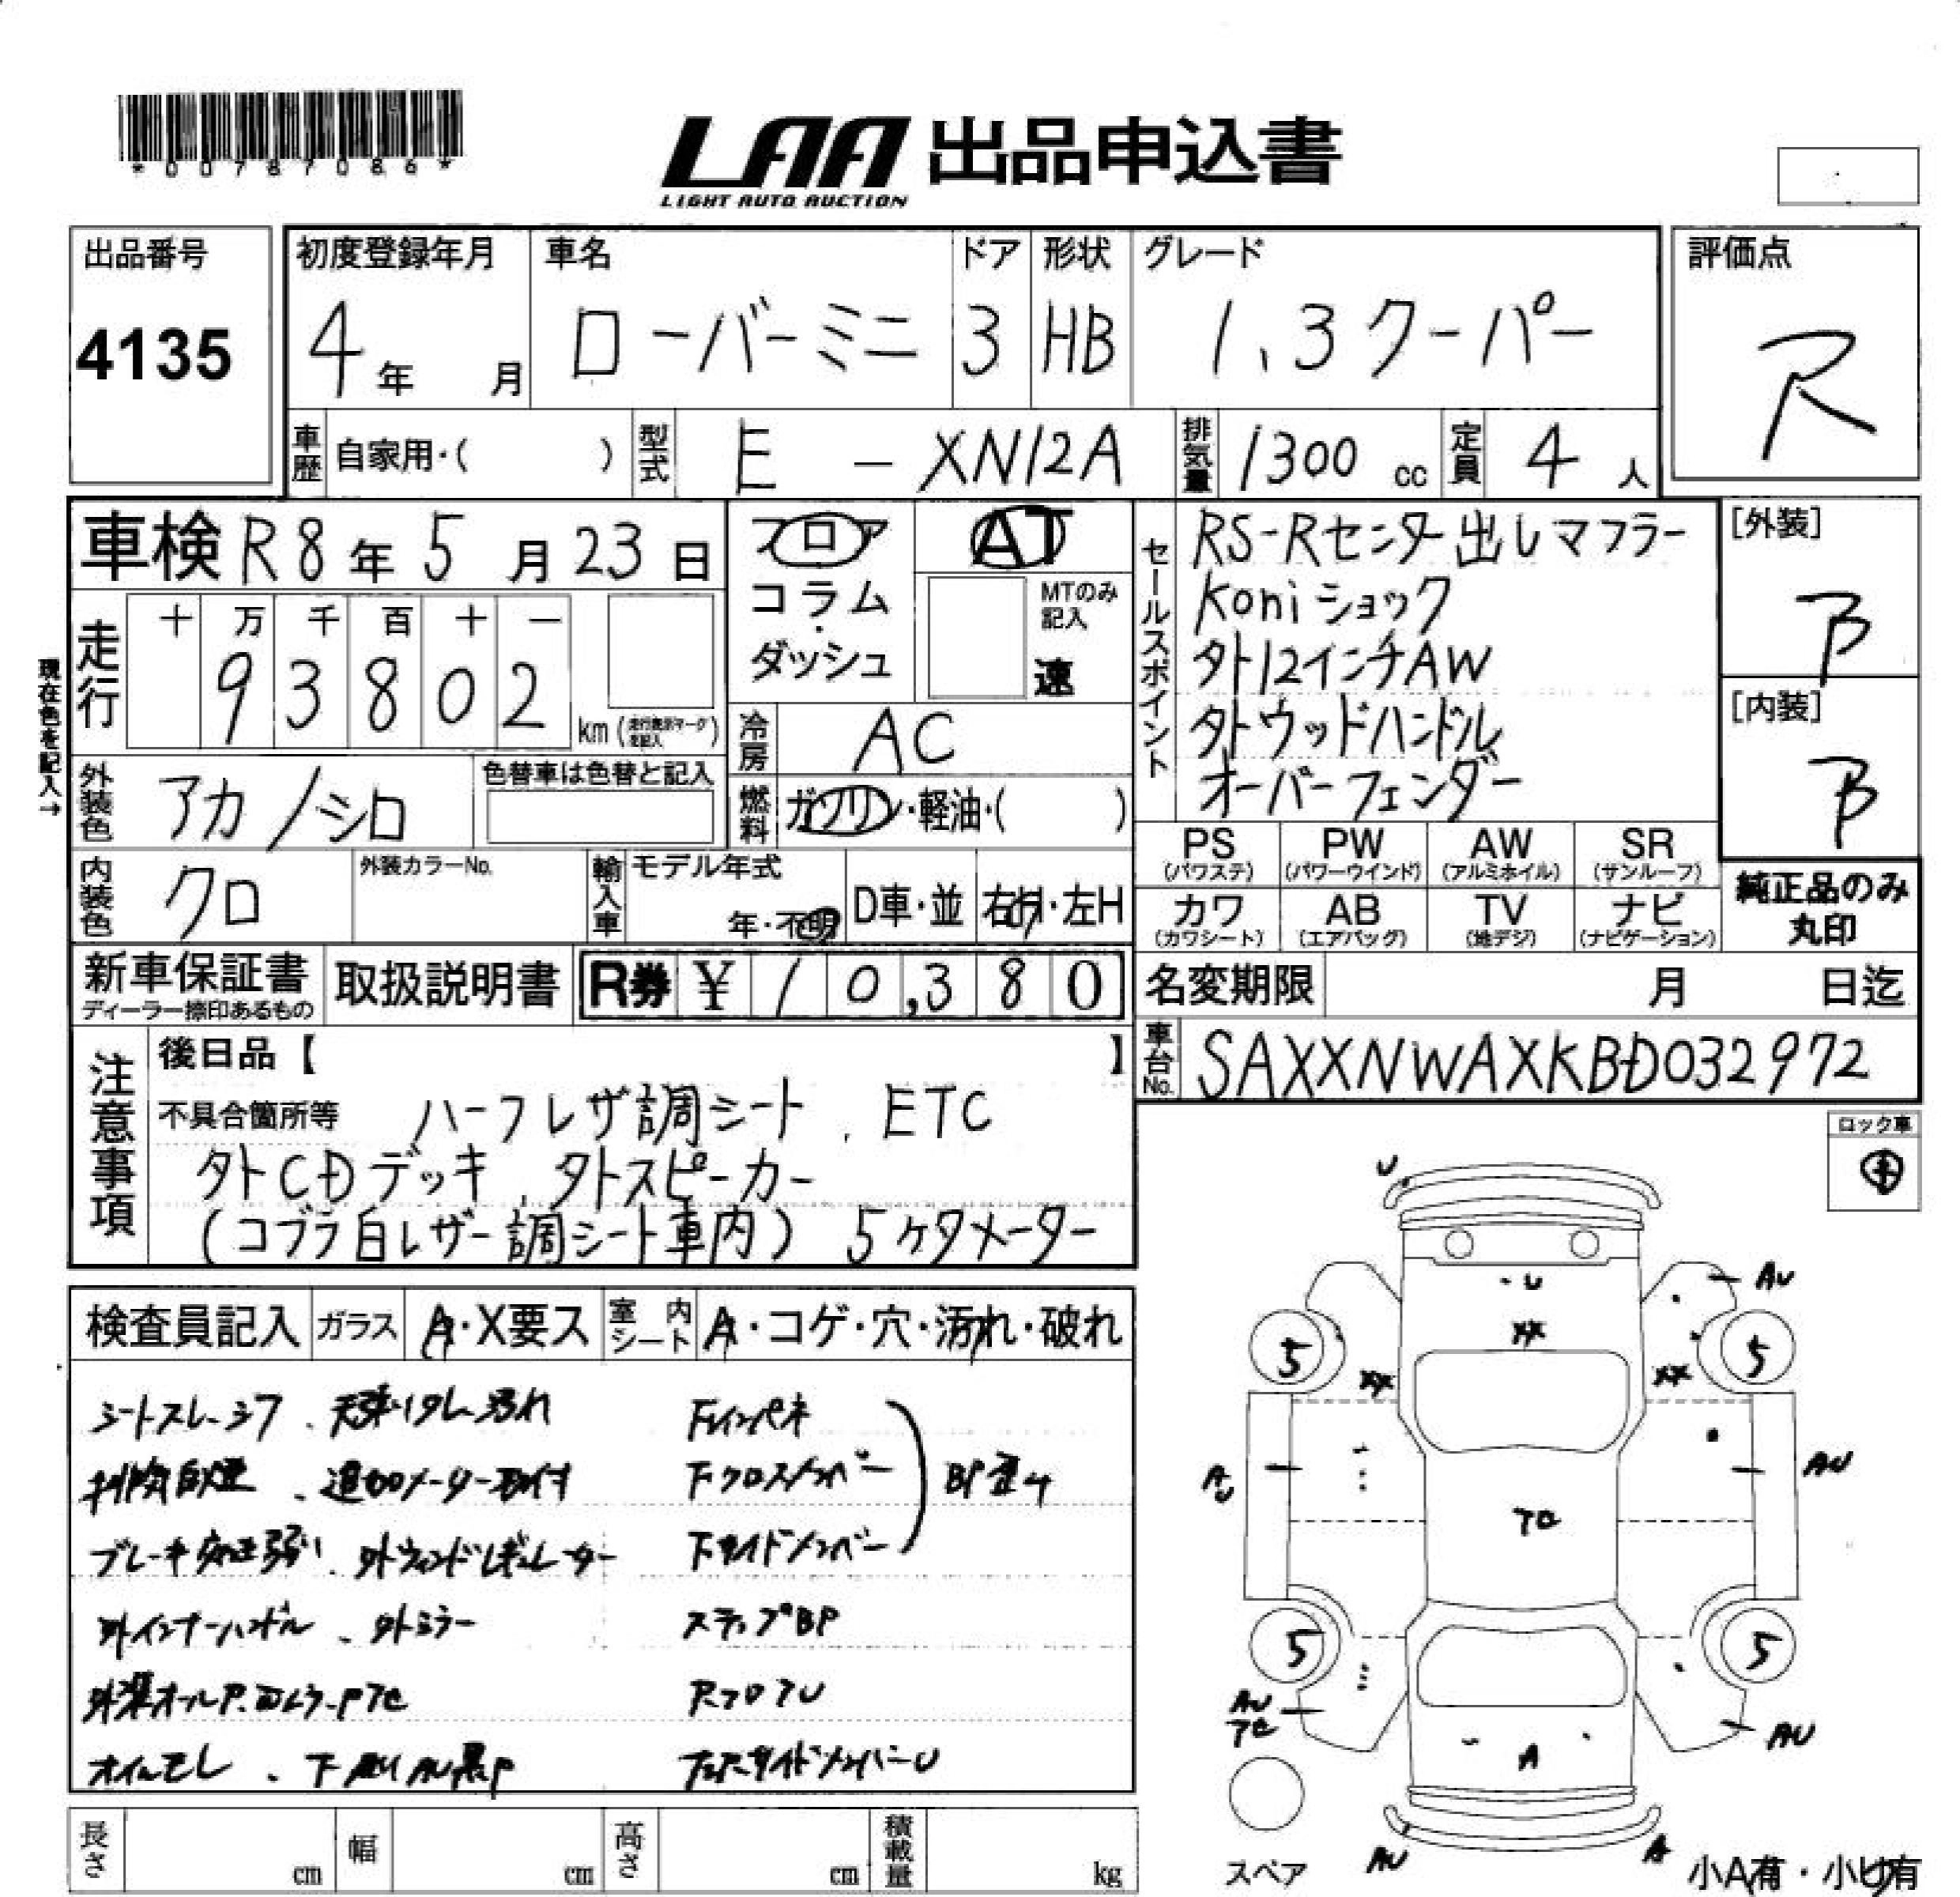 *00787086*
LAA 出品申込書
LIGHT AUTO AUCTION
出品番号
4135
初度登録年月
4年 月
車名
ローバーミニ
ドア
3
形状
HB
グレード
1.3クーパー
評価点
R
車歴 自家用・( )
型式 E - XN12A
排気量 1300 cc
定員 4 人
車検 R8年 5月 23日
フロア
コラム
・
ダッシュ
AT
MTのみ
記入
速
現在色を記入→
走行
十 万 千 百 十 一
9 3 8 0 2
km
冷房 AC
外装色 アカ/シロ
色替車は色替と記入
燃料 ガソリン・軽油・( )
内装色 クロ
外装カラーNo.
輸入車
モデル年式
年・不明
D車・並
右H・左H
セールスポイント
RS-Rセンター出しマフラー
Koniショック
外12インチAW
外ウッドハンドル
オーバーフェンダー
[外装]
B
[内装]
B
PS PW AW SR
(パワステ) (パワーウインド) (アルミホイル) (サンルーフ)
カワ AB TV ナビ
(カワシート) (エアバッグ) (地デジ) (ナビゲーション)
純正品のみ
丸印
新車保証書
ディーラー捺印あるもの
取扱説明書
R券 ¥ 10,380
名変期限 月 日迄
車台No. SAXXNWAXKBD032972
注意事項
後日品【 】
不具合箇所等 ハーフレザ調シート、ETC
外CDデッキ、外スピーカー
(コブラ白レザー調シート車内) 5ケタメーター
ロック車
検査員記入
ガラス
A・X要ス
室内シート
A・コゲ・穴・汚れ・破れ
シートスレ、シフ、天張りタレ汚れ
排気白煙、追加メーター取付
ブレーキ効き弱い、外ウィンドレギュレーター
外インナーハンドル、外ミラー
オイルモレ、下廻りAU黒P
下クロスメンバー
下サイドメンバー
ステップBP
RフロアU
U
U
XX
XX
XX
AU
5
5
A
U
AU
5
5
AU
AU
A
AU
A
スペア
小A有・小U有
長さ cm
幅 cm
高さ cm
積載量 kg